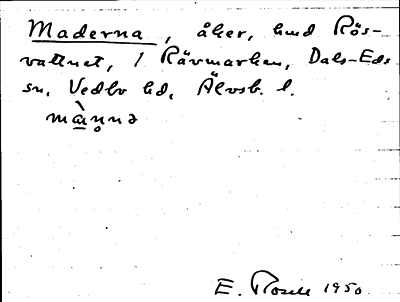 Maderna, åker, hmd Rös-
vattnet, 1 Rävmarken, Dals-Eds
sn, Vedbo hd, Älvsb. l.
mànnə
E. 1950